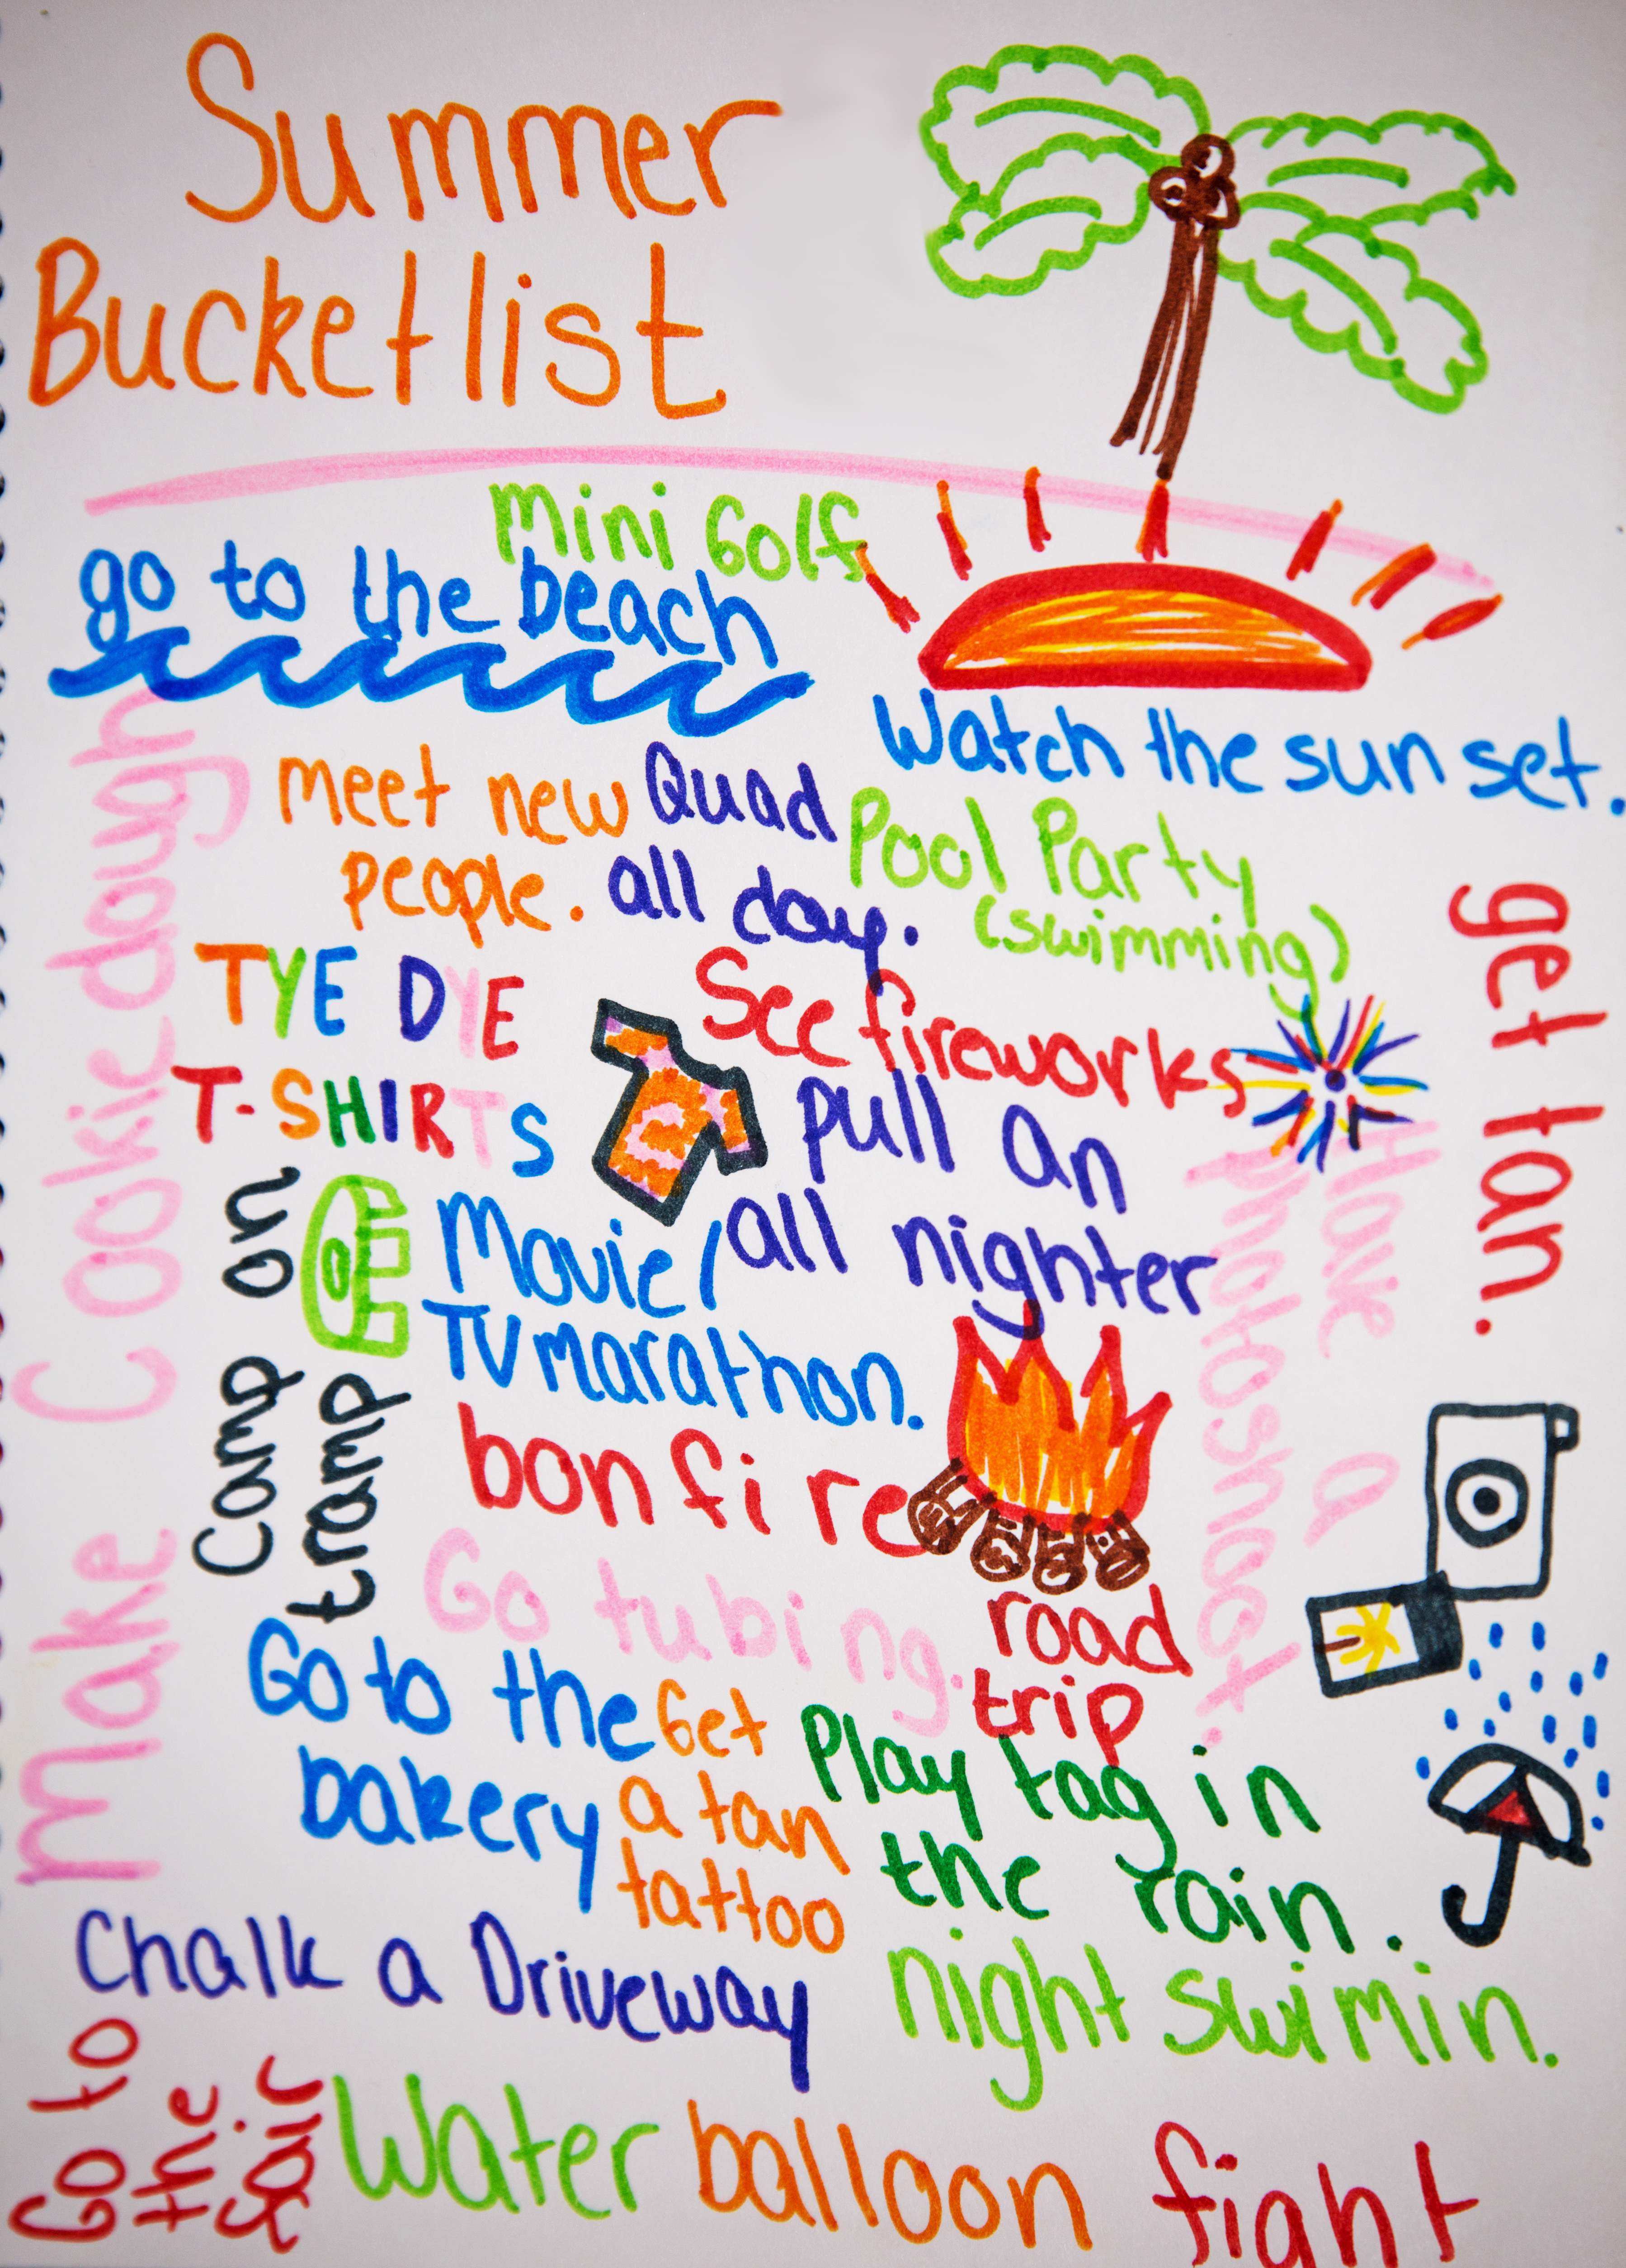 Summer
Bucketlist
mini Golf
go to the beach
Watch the sun set.
meet new
people.
Quad
all day.
Pool Party
(swimming)
get tan.
TYE DYE
T-SHIRTS
See fireworks
pull an
all nighter
make Cookie dough
Camp on
tramp
Movie/
TV marathon.
Have a
photoshoot.
bonfire
Go tubing.
road
trip
Go to the
bakery
Get
a tan
tattoo
Play tag in
the rain.
Chalk a Driveway
night swimin.
Go to
the
fair
Water balloon fight